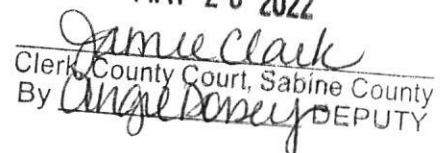 MAY 20 2022
Jamie Clark
Clerk, County Court, Sabine County
By Angie Dorsey DEPUTY